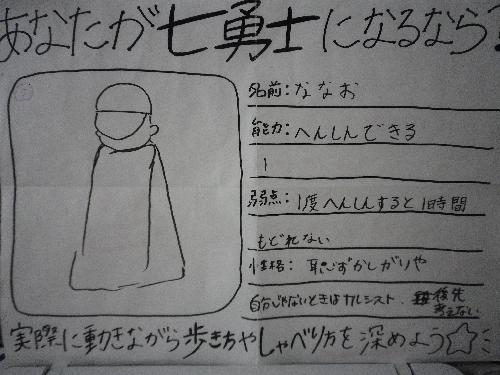 あなたが七勇士になるなら?
名前:ななお
能力:へんしんできる
弱点:1度へんしんすると1時間
もどれない
性格:恥ずかしがりや
自分じゃないときはナルシスト. 後先
考えない
実際に動きながら歩き方やしゃべり方を深めよう☆